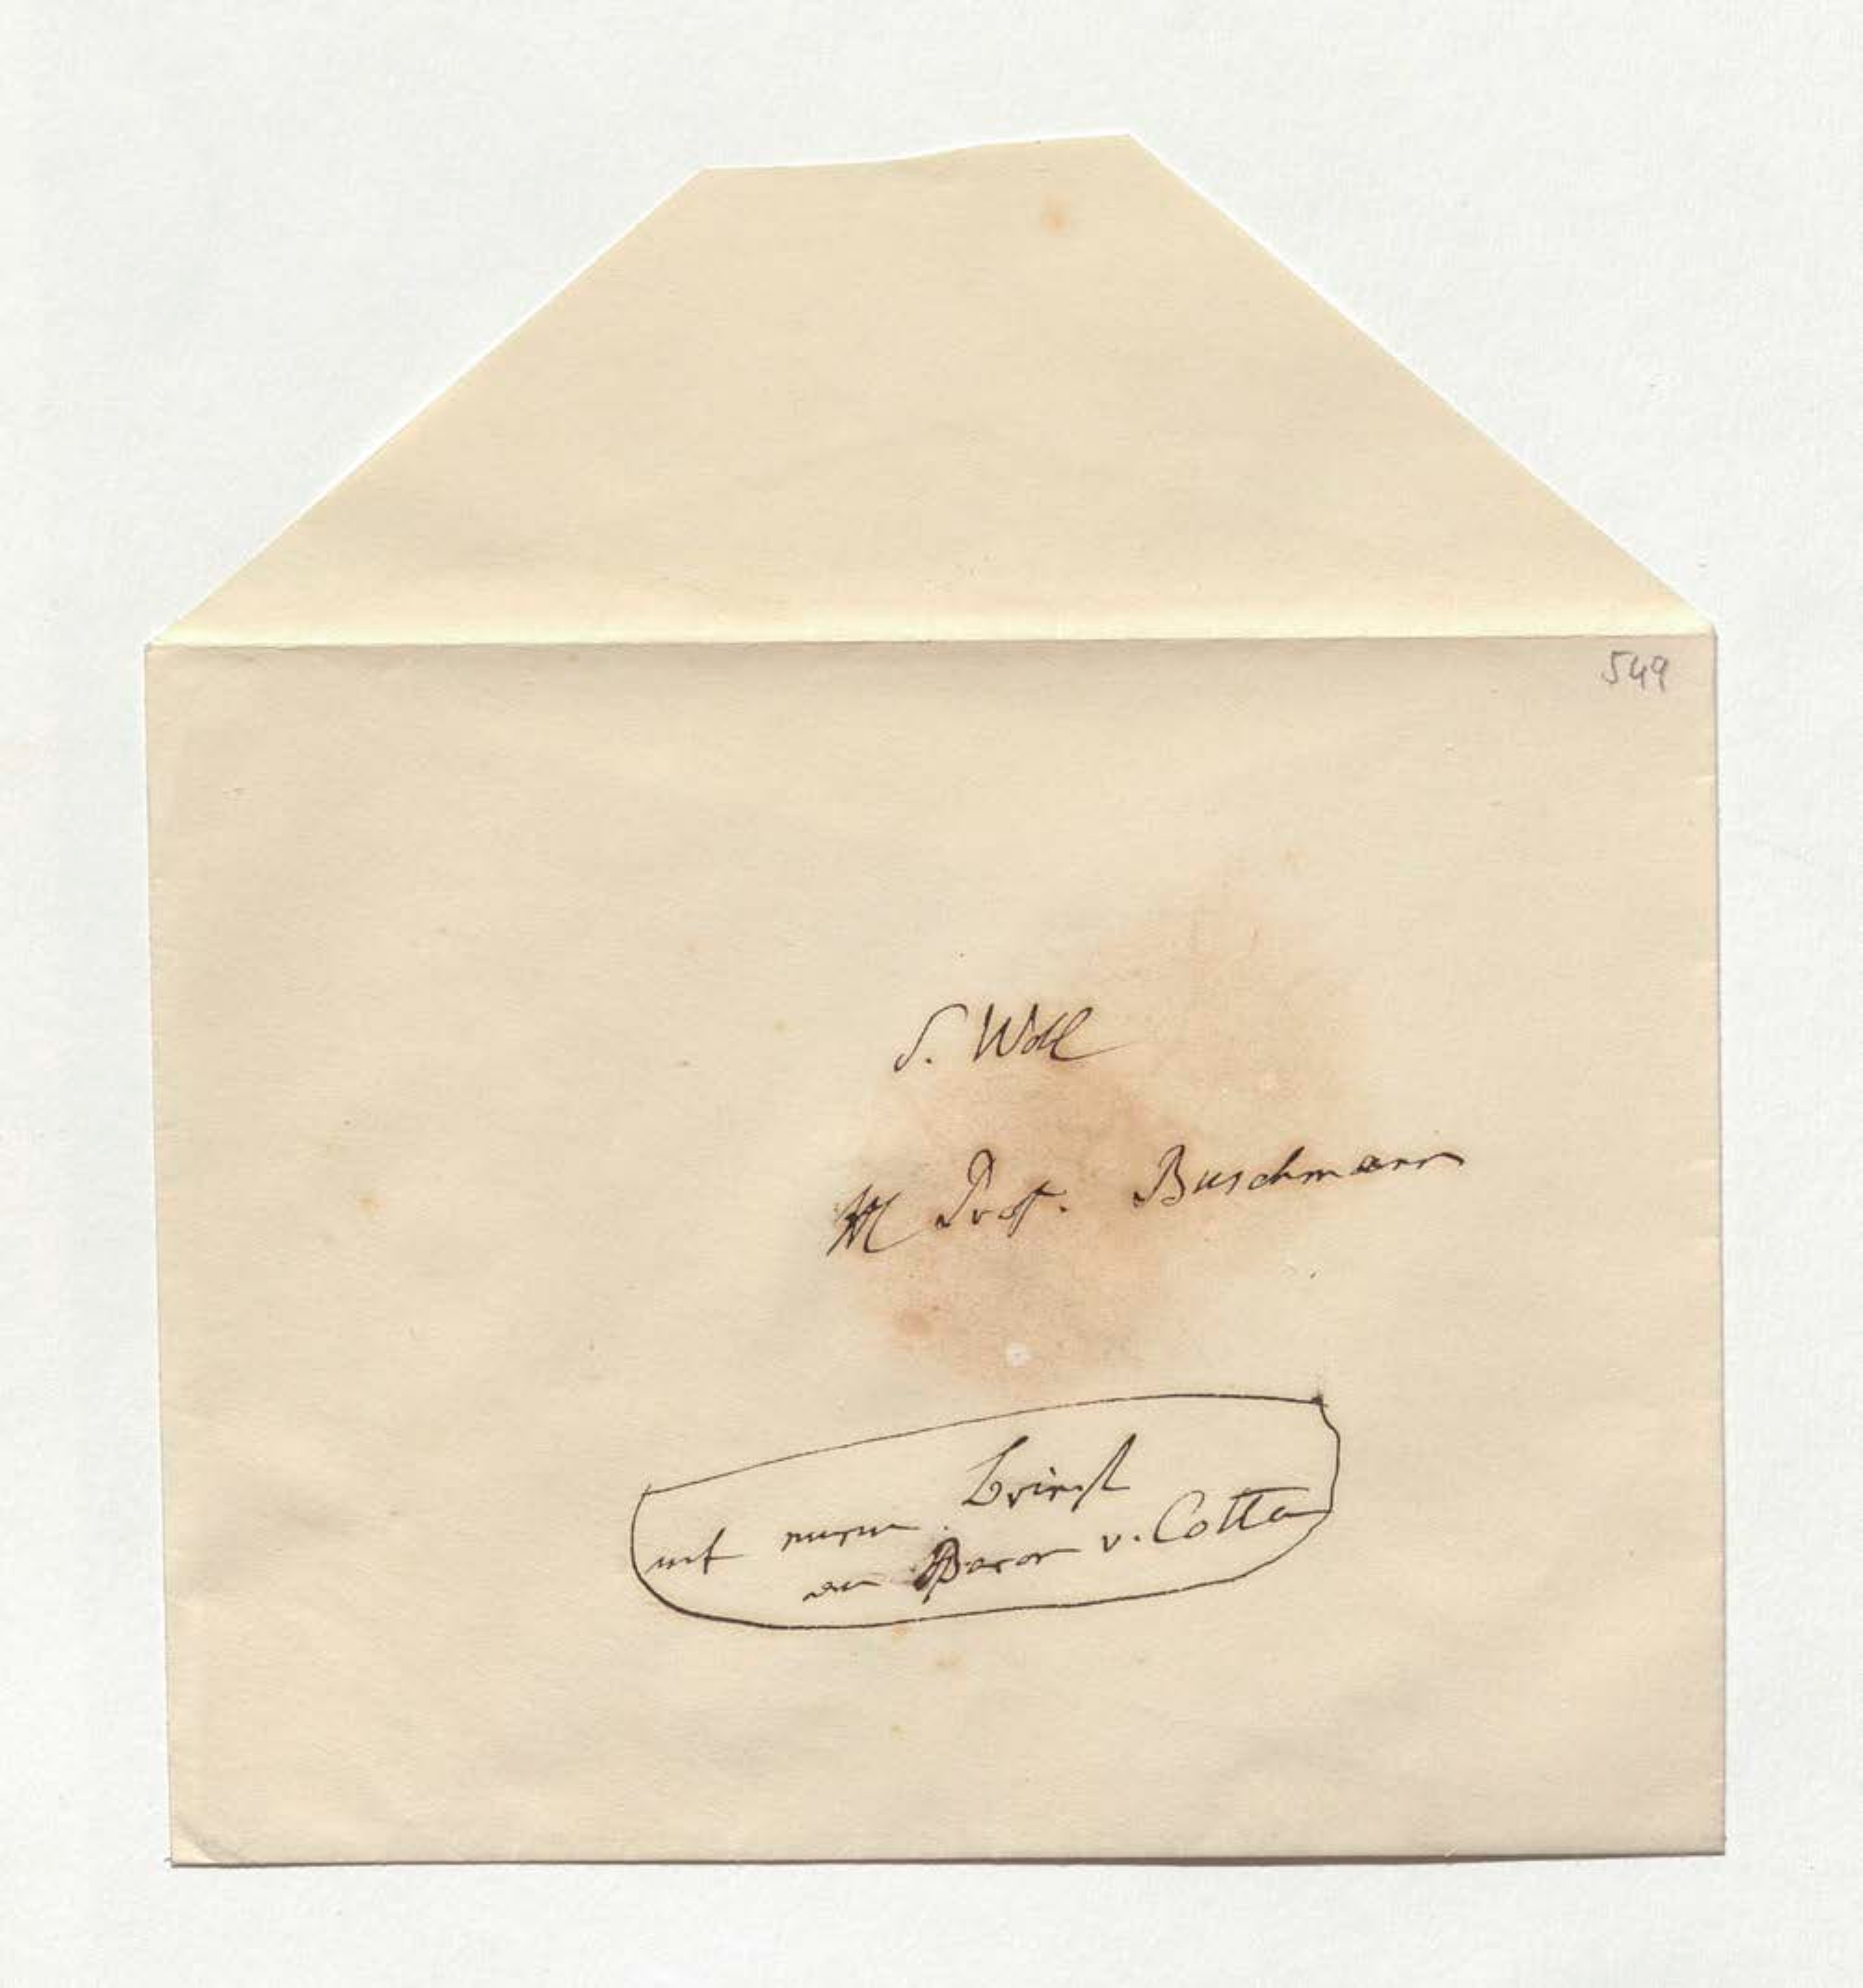 549
S. Woll
H Prof. Buschmann
mit meinem Brief
an Baron v. Cotta